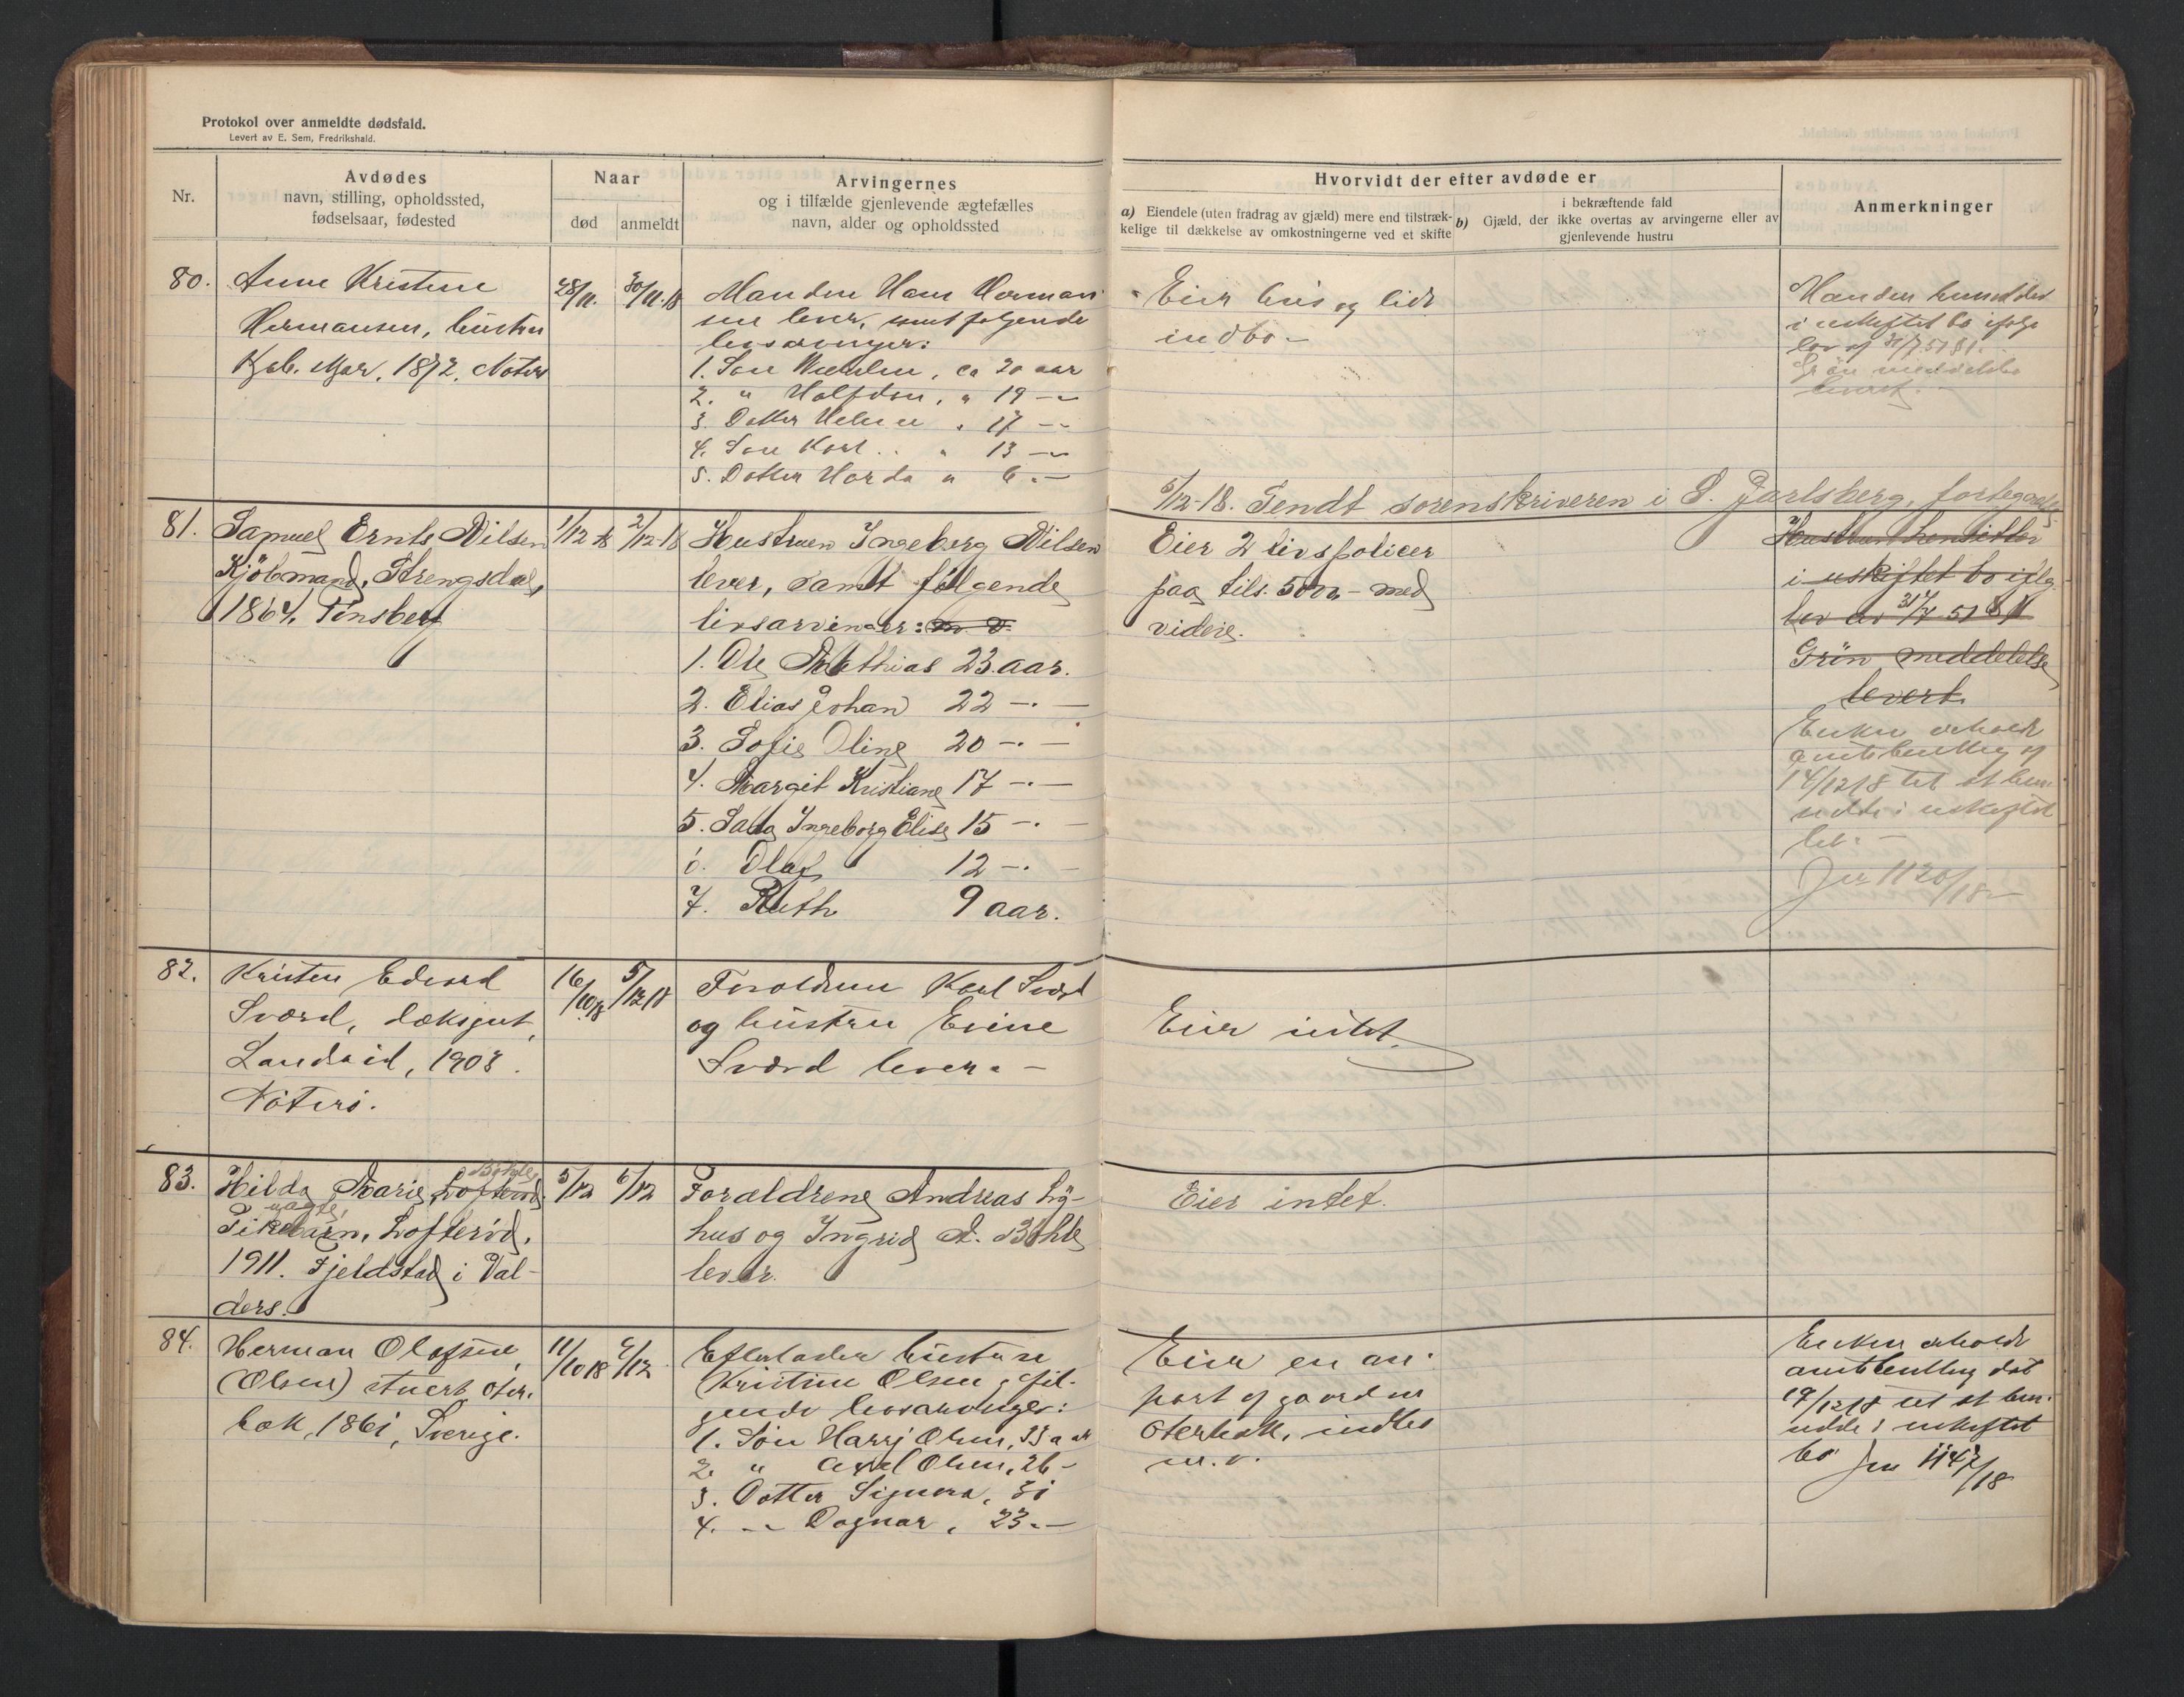 Protokol over anmeldte dødsfald.
Levert av E. Sem, Fredrikshald.
Nr.
Avdødes
navn, stilling, opholdssted,
fødselsaar, fødested
Naar
død
anmeldt
Arvingernes
og i tilfælde gjenlevende ægtefælles
navn, alder og opholdssted
Hvorvidt der efter avdøde er
a) Eiendele (uten fradrag av gjæld) mere end tilstræk-
kelige til dækkelse av omkostningerne ved et skifte
i bekræftende fald
b) Gjæld, der ikke overtas av arvingerne eller av
gjenlevende hustru
Anmerkninger
80.
Anne Kristine
Hermansen, hustru
1872, Nøterø
28/11.
30/11.18
Manden Hans Herman-
sen lever, samt følgende
livsarvinger:
1. Søn Wilhelm, ca 20 aar
2. " Halfdan, " 19 —
3. Datter Helene " 17 —
4. Søn Karl " 13 —
5. Datter Harda " 6 —
Eier hus og lidt
indbo —
Manden hensidder
i uskiftet bo ifølge
lov af 31/7 51 § 1.
Grøn meddelelse
levert.
5/12-18. Sendt sorenskriveren i S. Jarlsberg, fortegnelse
81.
Samuel Ernts Nilsen
Kjöbmand, Strengsdal,
1864. Tönsberg
1/12 18
2/12-18
Hustruen Ingeberg Nilsen
lever, samt følgende
livsarvinger:
1. Ole Mathias 23 aar.
2. Elias Johan 22 —
3. Sofie Oline 20 —
4. Margit Kristiane 17 —
5. Ingeborg Elise 15 —
6. Olaf 12 —
7. Ruth 9 aar.
Eier 2 livspolicer
paa tils. 5000,- med
videre.
Hustruen hensitter
i uskiftet bo ifølg
lov av 31/7-51 § 1
Grön meddelelse
levert.
Enken erholdt
amtsbevilling af
14/12 18 til at hen-
sidde i uskiftet
bo. —
Jnr 1120/18 —
82.
Kristen Edvard
Sværd, dæksgut,
1903.
Nøterø.
16/10 18
5/12 18
Forældrene Karl Sværd
og hustru Evine
Sværd lever. —
Eier intet.
83.
Bøhle
Hilda Marie Lofterød
Pikebarn, Lofterød,
1911. Fjeldstad i Val-
ders.
5/12
6/12
Forældrene Andreas Ly-
hus og Ingrid A. Bøhle
lever.
Eier intet.
84.
Herman Olafsen
(Olsen) stuert, Oter-
bæk, 1861, Sverige.
11/10 18
9/12
Efterlader hustru
Kristine Olsen og føl-
gende livsarvinger:
1. Søn Harry Olsen, 33 aar
2. " Axel Olsen, 26 —
3. Datter Signora, 31
4. — Dagnar, 23 —
Eier en an-
part af gaarden
Oterbæk, indbo
m.v.
Enken erholdt
amtsbevilling dat
19/12 18 til at hen-
sidde i uskiftet
bo Jnr 1147/18